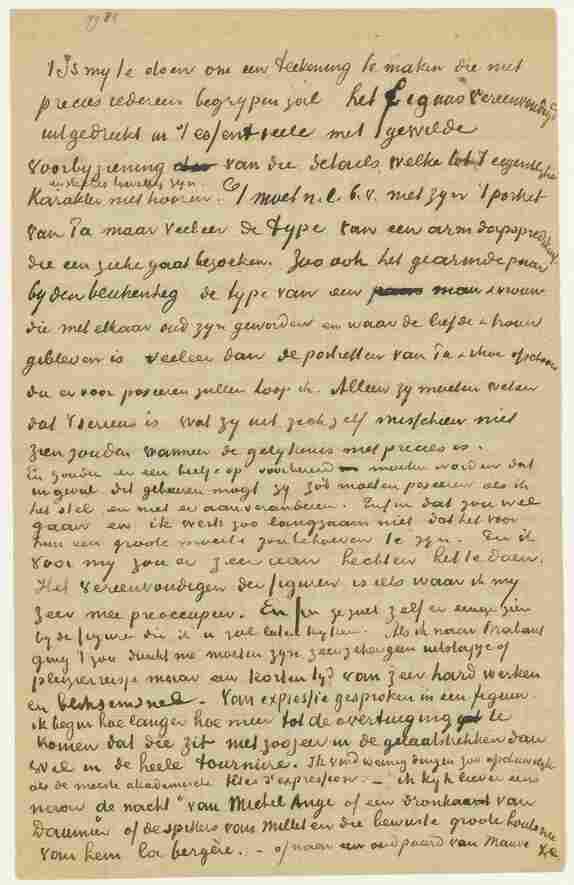 't Is my te doen om een teekening te maken die niet
precies iedereen begrypen zal het figuur vereenvoudigd
uitgedrukt in 't essentieele met gewilde
voorbyziening van die details welke tot 't eigentlyke
Karakter niet hooren. en slechts toevallig zyn.
't moet n.l. b.v. niet zyn 't portret
van Pa maar veeleer de type van een arm dorpspredikantje
die een zieke gaat bezoeken. Zoo ook het gearmde paar
by den beukenheg de type van een man & vrouw
die met elkaar oud zyn geworden en waar de liefde & trouw
gebleven is veeleer dan de portretten van Pa & Moe ofschoon
die er voor poseeren zullen hoop ik. Alleen zy moeten weten
dat 't serieus is wat zy uit zich zelf misschien niet
zien zouden wanneer de gelykenis niet precies is.
En zouden er een beetje op voorbereid moeten worden dat
ingeval dit gebeuren mogt zy zóó moeten poseeren als ik
het stel en niet er aan veranderen. Enfin dat zou wel
gaan en ik werk zoo langzaam niet dat het voor
hun een groote moeite zou behoeven te zyn. En ik
voor my zou er zeer aan hechten het te doen.
Het vereenvoudigen der figuren is iets waar ik my
zeer mee preoccupeer. Enfin ge zult zelf er eenige zien
by de figuren die ik u zal laten kyken. Als ik naar Brabant
ging 't zou dunkt me moeten zyn geen uitstapje of
pleizierreisje maar een korten tyd van zeer hard werken
en bliksemsnel. Van expressie gesproken in een figuur.
ik begin hoe langer hoe meer tot de overtuiging te
komen dat die zit niet zoozeer in de gelaatstrekken dan
wel in de heele tournure. Ik vind weinig dingen zoo afschuwelyk
als de meeste akademische têtes d'expression. – ik kyk liever eens
naar „de nacht" van Michel Ange of een dronkaard van
Daumier of de spitters van Millet en die bewuste groote houtsnee
van hem la bergère. – of naar een oud paard van Mauve &c